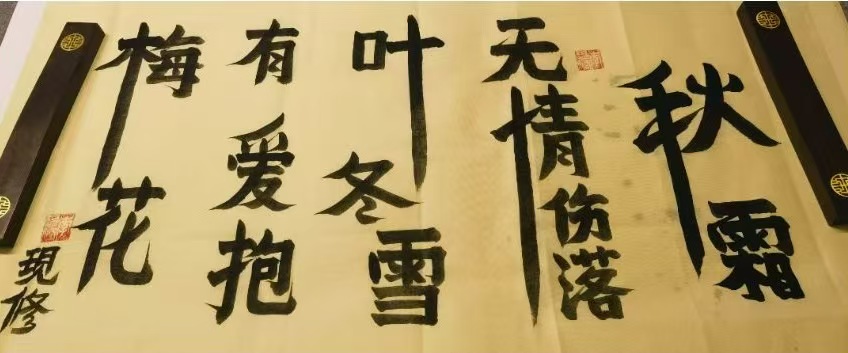 秋霜
无情伤落
叶冬雪
有爱抱
梅花
現修